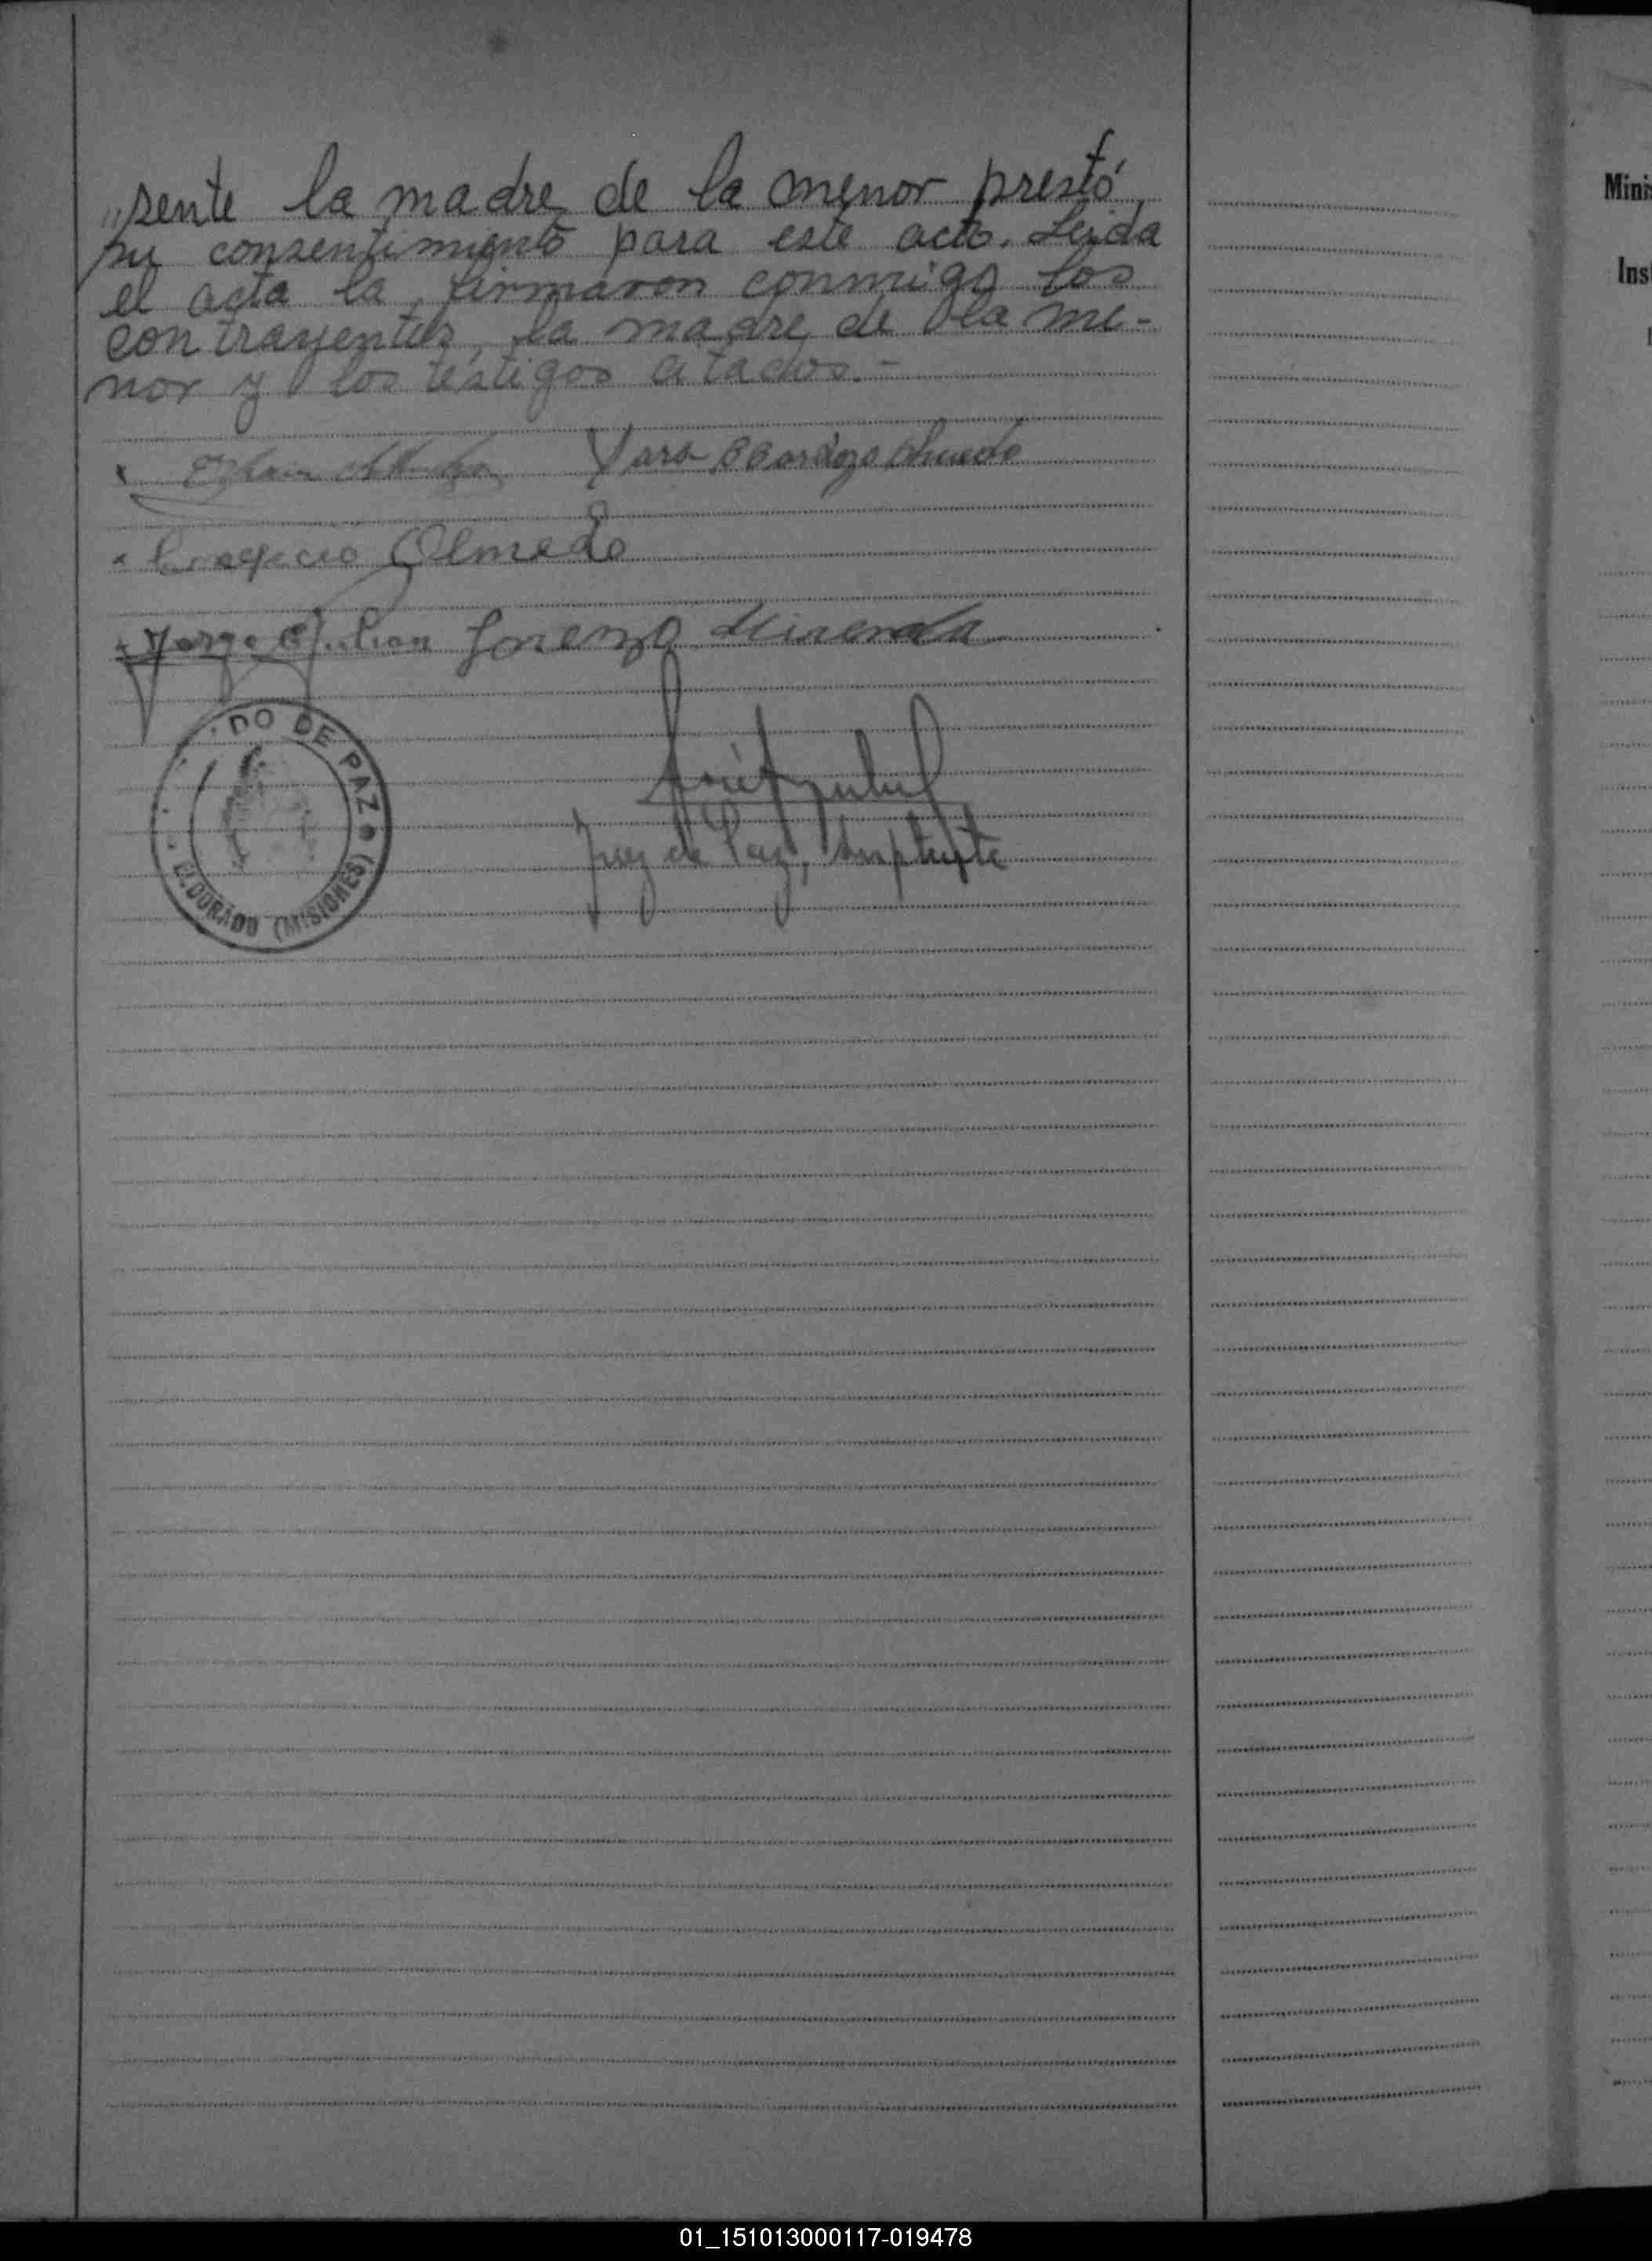 „sente la madre de la menor prestó
su consentimiento para este acto. Leida
el acta la firmaron conmigo los
contrayentes, la madre de la me-
nor y los testigos citados.-
Olmedo
Jorge Lorenzo Miranda
DO DE PAZ
ELDORADO (MISIONES)
Juez de Paz, Suplente
Minis
Inst
01_151013000117-019478